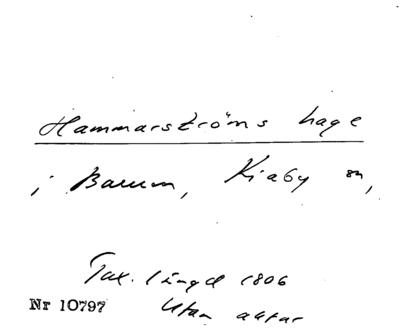 Hammarströms hage
i Barum, Kiaby sn,
Tax. längd 1806
Nr 10797 Utan aktar